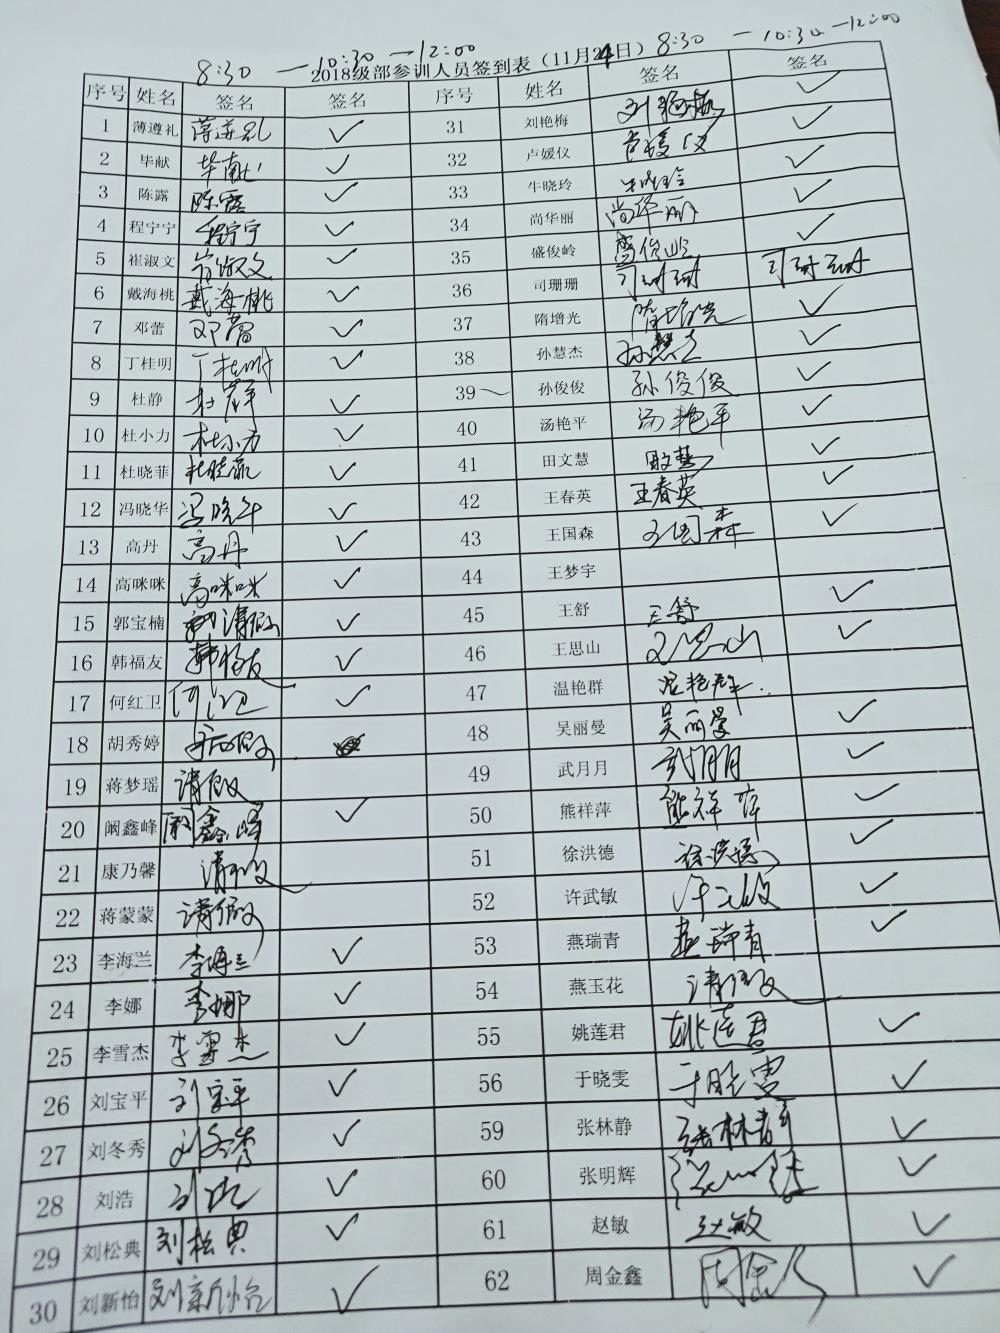 8:30 — 10:30 — 12:00 8:30 — 10:30 — 12:00
2018级部参训人员签到表（11月24日）
序号 姓名 签名 签名 序号 姓名 签名 签名
1 薄遵礼 薄遵礼 ✓ 31 刘艳梅 刘艳梅 ✓
2 毕献 毕献 ✓ 32 卢媛仪 卢媛仪 ✓
3 陈露 陈露 ✓ 33 牛晓玲 牛晓玲 ✓
4 程宁宁 程宁宁 ✓ 34 尚华丽 尚华丽 ✓
5 崔淑文 崔淑文 ✓ 35 盛俊岭 盛俊岭 ✓
6 戴海桃 戴海桃 ✓ 36 司珊珊 司珊珊 司珊珊
7 邓蕾 邓蕾 ✓ 37 隋增光 隋增光 ✓
8 丁桂明 丁桂明 ✓ 38 孙慧杰 孙慧杰 ✓
9 杜静 杜静 ✓ 39 孙俊俊 孙俊俊 ✓
10 杜小力 杜小力 ✓ 40 汤艳平 汤艳平 ✓
11 杜晓菲 杜晓菲 ✓ 41 田文慧 田文慧 ✓
12 冯晓华 冯晓华 ✓ 42 王春英 王春英 ✓
13 高丹 高丹 ✓ 43 王国森 王国森 ✓
14 高咪咪 高咪咪 ✓ 44 王梦宇
15 郭宝楠 请假 ✓ 45 王舒 王舒 ✓
16 韩福友 韩福友 ✓ 46 王思山 王思山 ✓
17 何红卫 何红卫 ✓ 47 温艳群 温艳群
18 胡秀婷 病假 48 吴丽曼 吴丽曼 ✓
19 蒋梦瑶 请假 49 武月月 武月月 ✓
20 阚鑫峰 阚鑫峰 ✓ 50 熊祥萍 熊祥萍 ✓
21 康乃馨 请假 51 徐洪德 徐洪德 ✓
22 蒋蒙蒙 请假 52 许武敏 许武敏 ✓
23 李海兰 李海兰 ✓ 53 燕瑞青 燕瑞青 ✓
24 李娜 李娜 ✓ 54 燕玉花 请假
25 李雪杰 李雪杰 ✓ 55 姚莲君 姚莲君 ✓
26 刘宝平 刘宝平 ✓ 56 于晓雯 于晓雯 ✓
27 刘冬秀 刘冬秀 ✓ 59 张林静 张林静 ✓
28 刘浩 刘浩 ✓ 60 张明辉 张明辉 ✓
29 刘松典 刘松典 ✓ 61 赵敏 赵敏 ✓
30 刘新怡 刘新怡 ✓ 62 周金鑫 周金鑫 ✓